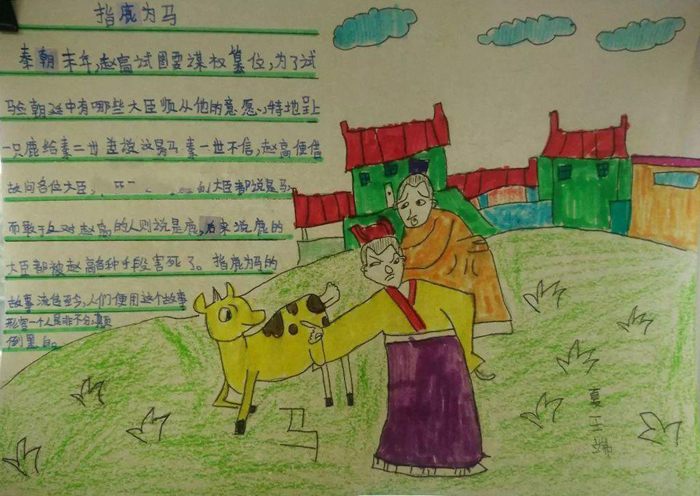 指鹿为马
秦朝末年，赵高试图要谋权篡位，为了试
验朝廷中有哪些大臣顺从他的意愿，特地呈上
一只鹿给秦二世 说这是马 秦一世不信，赵高便借
故问各位大臣， 大臣都说是马，
而敢于反对赵高的人则说是鹿，后来说鹿的
大臣都被赵高各种手段害死了。指鹿为马的
故事流传至今，人们便用这个故事
形容一个人是非不分，颠
倒黑白。
马
夏玉